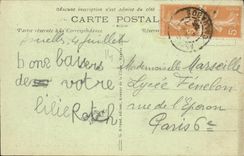 Aucune inscription n'est admise du côté
CARTE POSTALE
Partie réservée à la Correspondance
4 juillet
bons baisers
de votre
lilie
Mademoiselle Marseille
Lycée Fénelon
rue de l'Eperon
Paris 6e